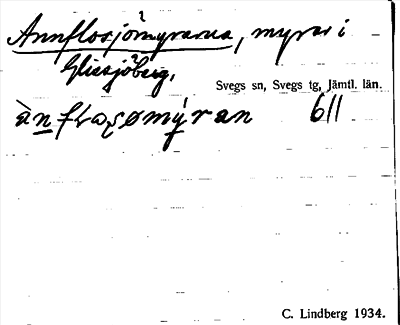 Annflosjömyrarna, myrar i
Glissjöberg.
Svegs sn, Svegs tg, Jämtl. län.
611
C. Lindberg 1934.